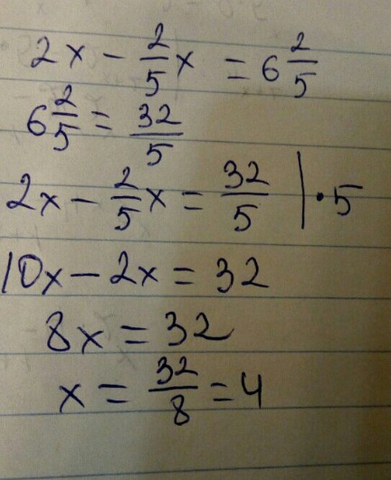 2x - 2/5 x = 6 2/5
6 2/5 = 32/5
2x - 2/5 x = 32/5 | · 5
10x - 2x = 32
8x = 32
x = 32/8 = 4